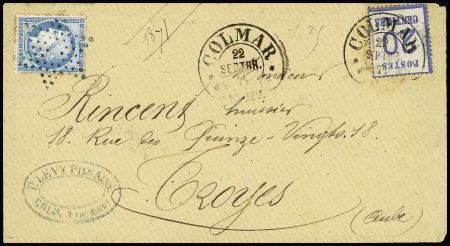 1871
COLMAR
22
SEPTBR.
COLMAR
22
POSTES
20
CENTIMES
Monsieur
Rincent, huissier
18. Rue des Quinze-Vingts. 18.
Troyes
(Aube)
P. LEVY FILS AINÉ